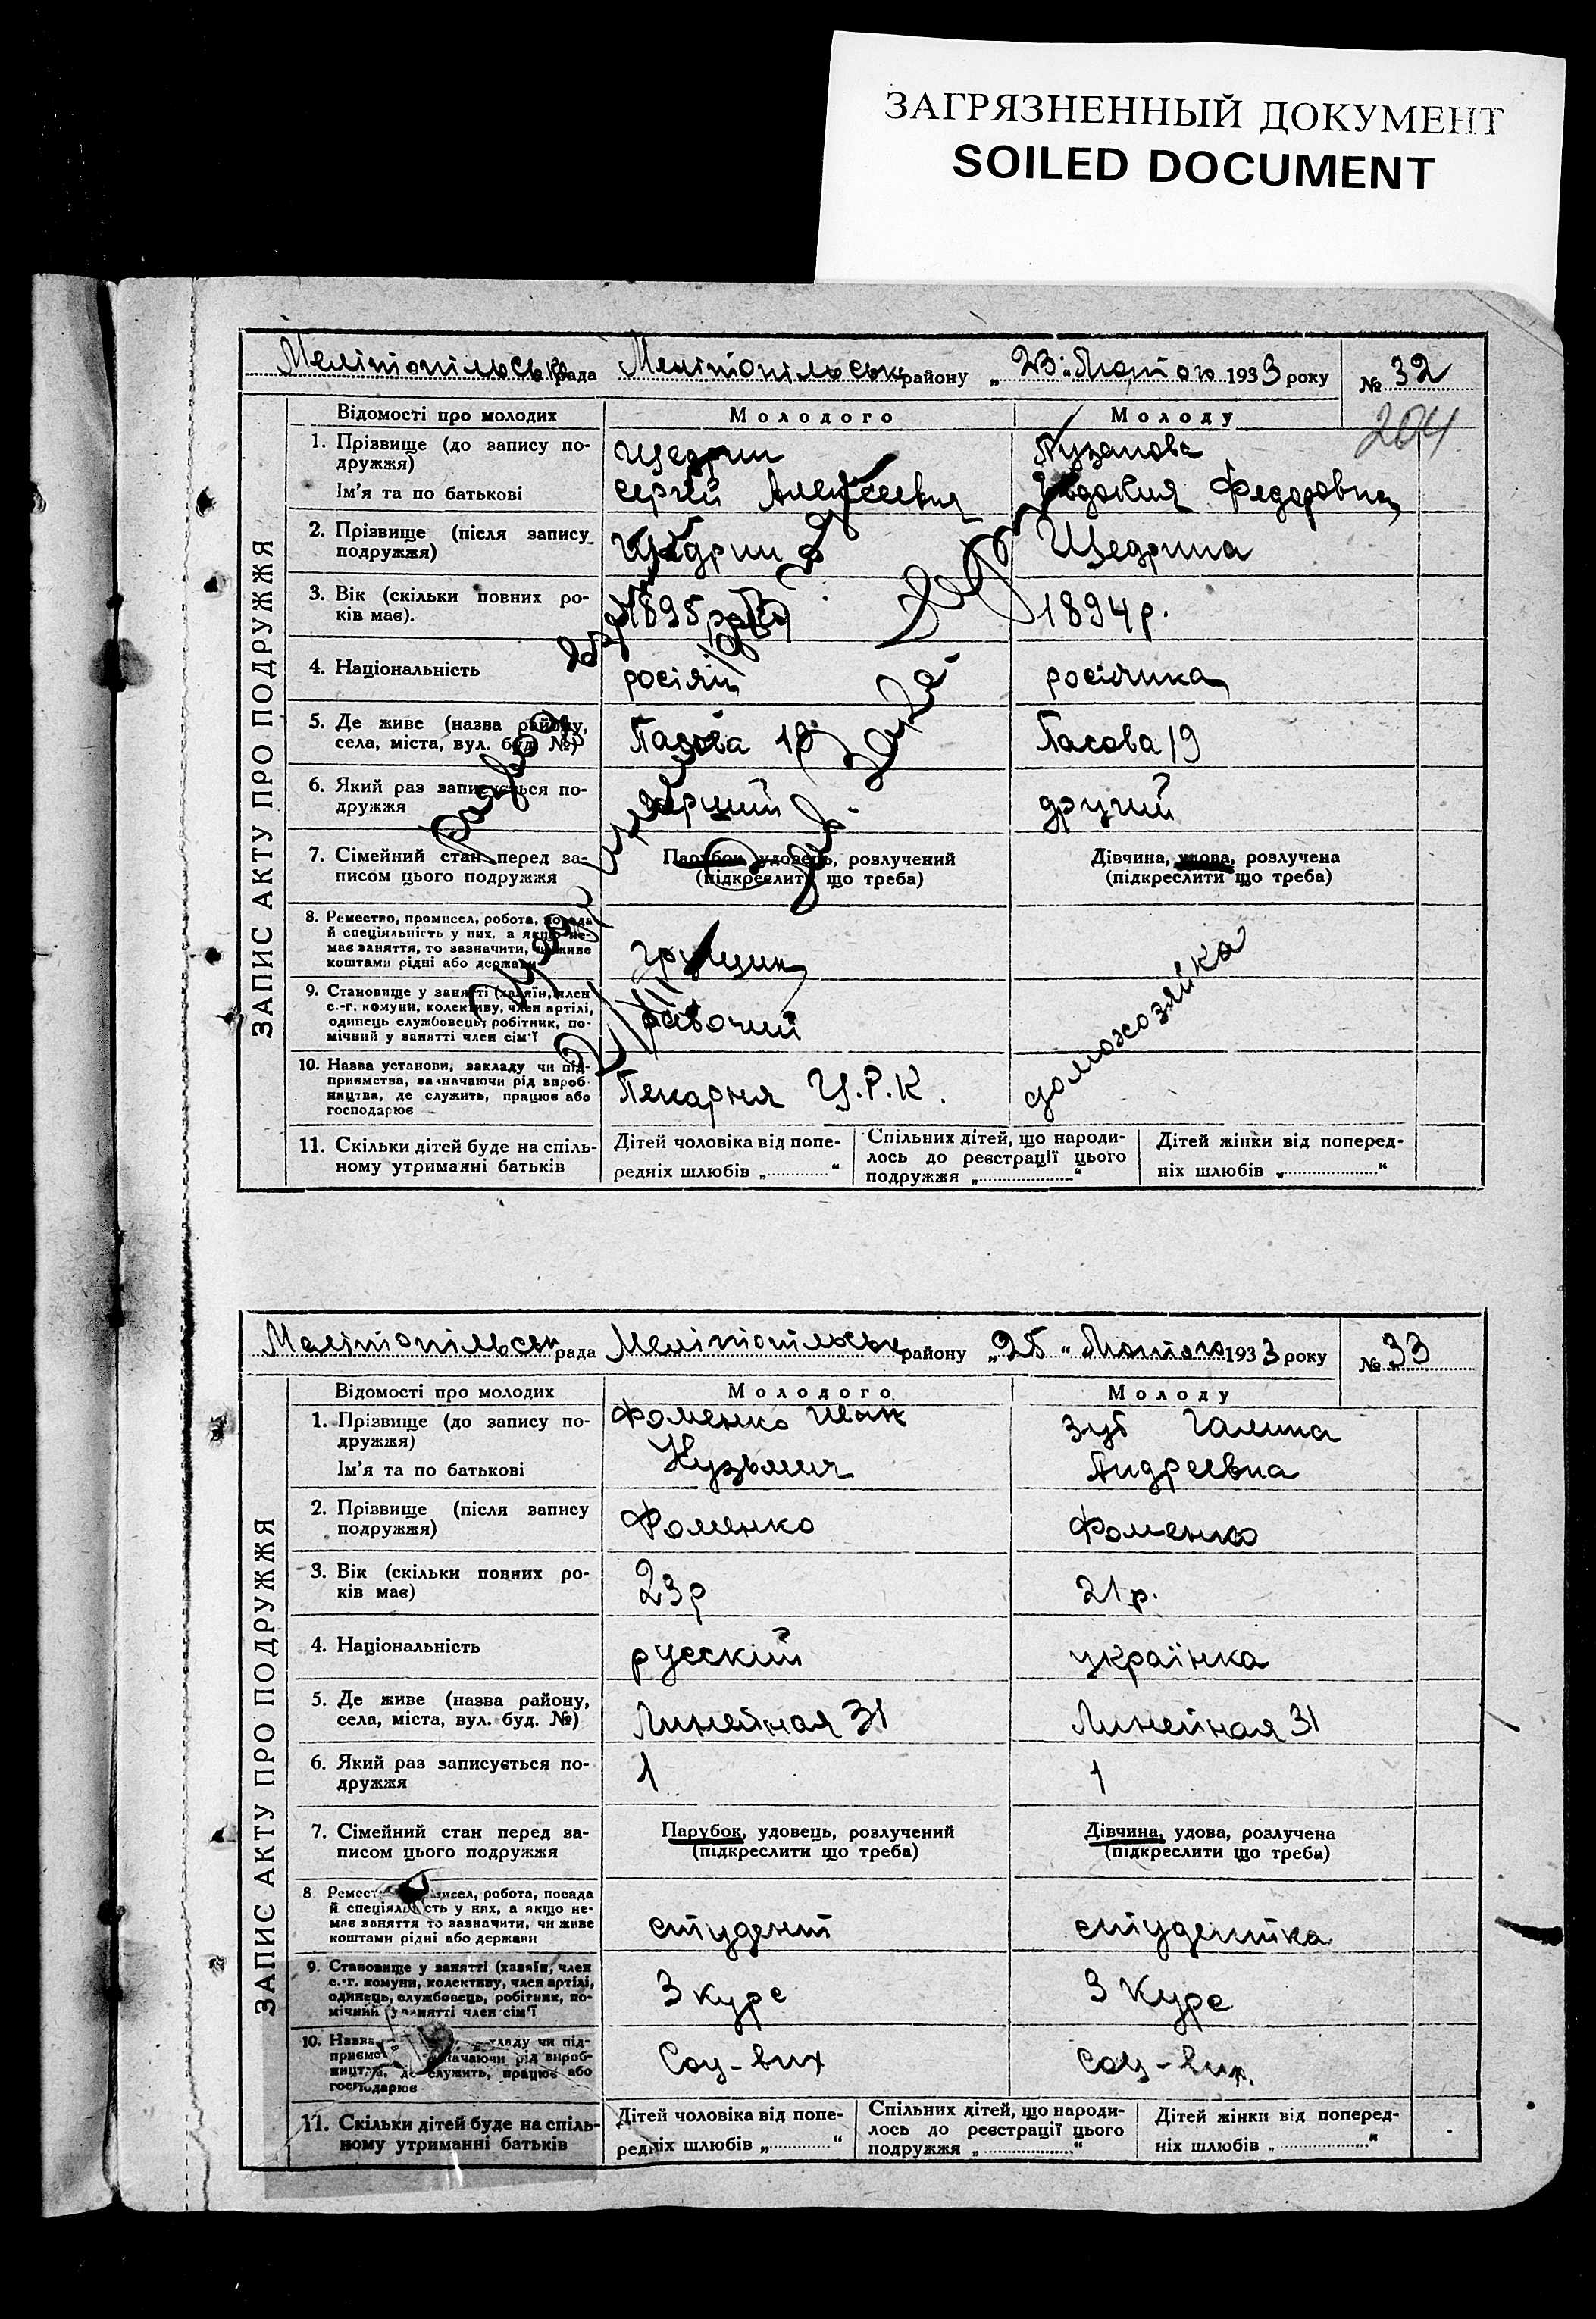 ЗАГРЯЗНЕННЫЙ ДОКУМЕНТ
SOILED DOCUMENT
Мелітопільська рада Мелітопільськ району „23" Лютого 1933 року № 32
204
ЗАПИС АКТУ ПРО ПОДРУЖЖЯ
Відомості про молодих Молодого Молоду
1. Прізвище (до запису по- Щедрин Пузанова
дружжя)
Ім'я та по батькові Сергей Алексеевич Евдокия Федоровна
2. Прізвище (після запису Щедрин Щедрина
подружжя)
3. Вік (скільки повних ро- 1895 1894 р.
ків має).
4. Національність росіян росіянка
5. Де живе (назва району, 19 Пасова 19
села, міста, вул. буд. №)
6. Який раз записується по- перший другий
дружжя
7. Сімейний стан перед за- Парубок, удовець, розлучений Дівчина, удова, розлучена
писом цього подружжя (підкреслити що треба) (підкреслити що треба)
8. Ремество, промисел, робота, посада
й спеціяльність у них, а якщо не-
має заняття, то зазначити, чи живе
коштами рідні або держави домохозяйка
9. Становище у занятті (хазяїн, член
с.-г. комуни, колективу, член артілі, рабочий
одинець службовець, робітник, по-
мічний у занятті член сім'ї
10. Назва установи, закладу чи під-
приємства, зазначаючи рід вироб- Пекарня Ц.Р.К.
ництва, де служить, працює або
господарює
11. Скільки дітей буде на спіль- Дітей чоловіка від попе- Спільних дітей, що народи- Дітей жінки від поперед-
ному утриманні батьків редніх шлюбів „ “ лось до реєстрації цього ніх шлюбів „ “
подружжя „ “
Мелітопільськ рада Мелітопільськ району „25" Лютого 1933 року № 33
ЗАПИС АКТУ ПРО ПОДРУЖЖЯ
Відомості про молодих Молодого Молоду
1. Прізвище (до запису по- Фоменко Иван Зуб Галина
дружжя)
Ім'я та по батькові Кузьмич Андреевна
2. Прізвище (після запису Фоменко Фоменко
подружжя)
3. Вік (скільки повних ро- 23 р 21 р.
ків має)
4. Національність русскій українка
5. Де живе (назва району, Линейная 31 Линейная 31
села, міста, вул. буд. №)
6. Який раз записується по- 1 1
дружжя
7. Сімейний стан перед за- Парубок, удовець, розлучений Дівчина, удова, розлучена
писом цього подружжя (підкреслити що треба) (підкреслити що треба)
8 робота, посада
й спеціяльність у них, а якщо не-
має заняття то зазначити, чи живе студент студентка
коштами рідні або держави
9. Становище у занятті (хазяїн, член
с.-г. комуни, колективу, член артілі, 3 курс 3 курс
одинець, службовець, робітник, по-
мічний у занятті член сім'ї
10. Назва чи під-
рід вироб- Соц-вих Соц-вих.
де служить, працює або
господарює
11. Скільки дітей буде на спіль- Дітей чоловіка від попе- Спільних дітей, що народи- Дітей жінки від поперед-
ному утриманні батьків редніх шлюбів „ “ лось до реєстрації цього ніх шлюбів „ “
подружжя „ “